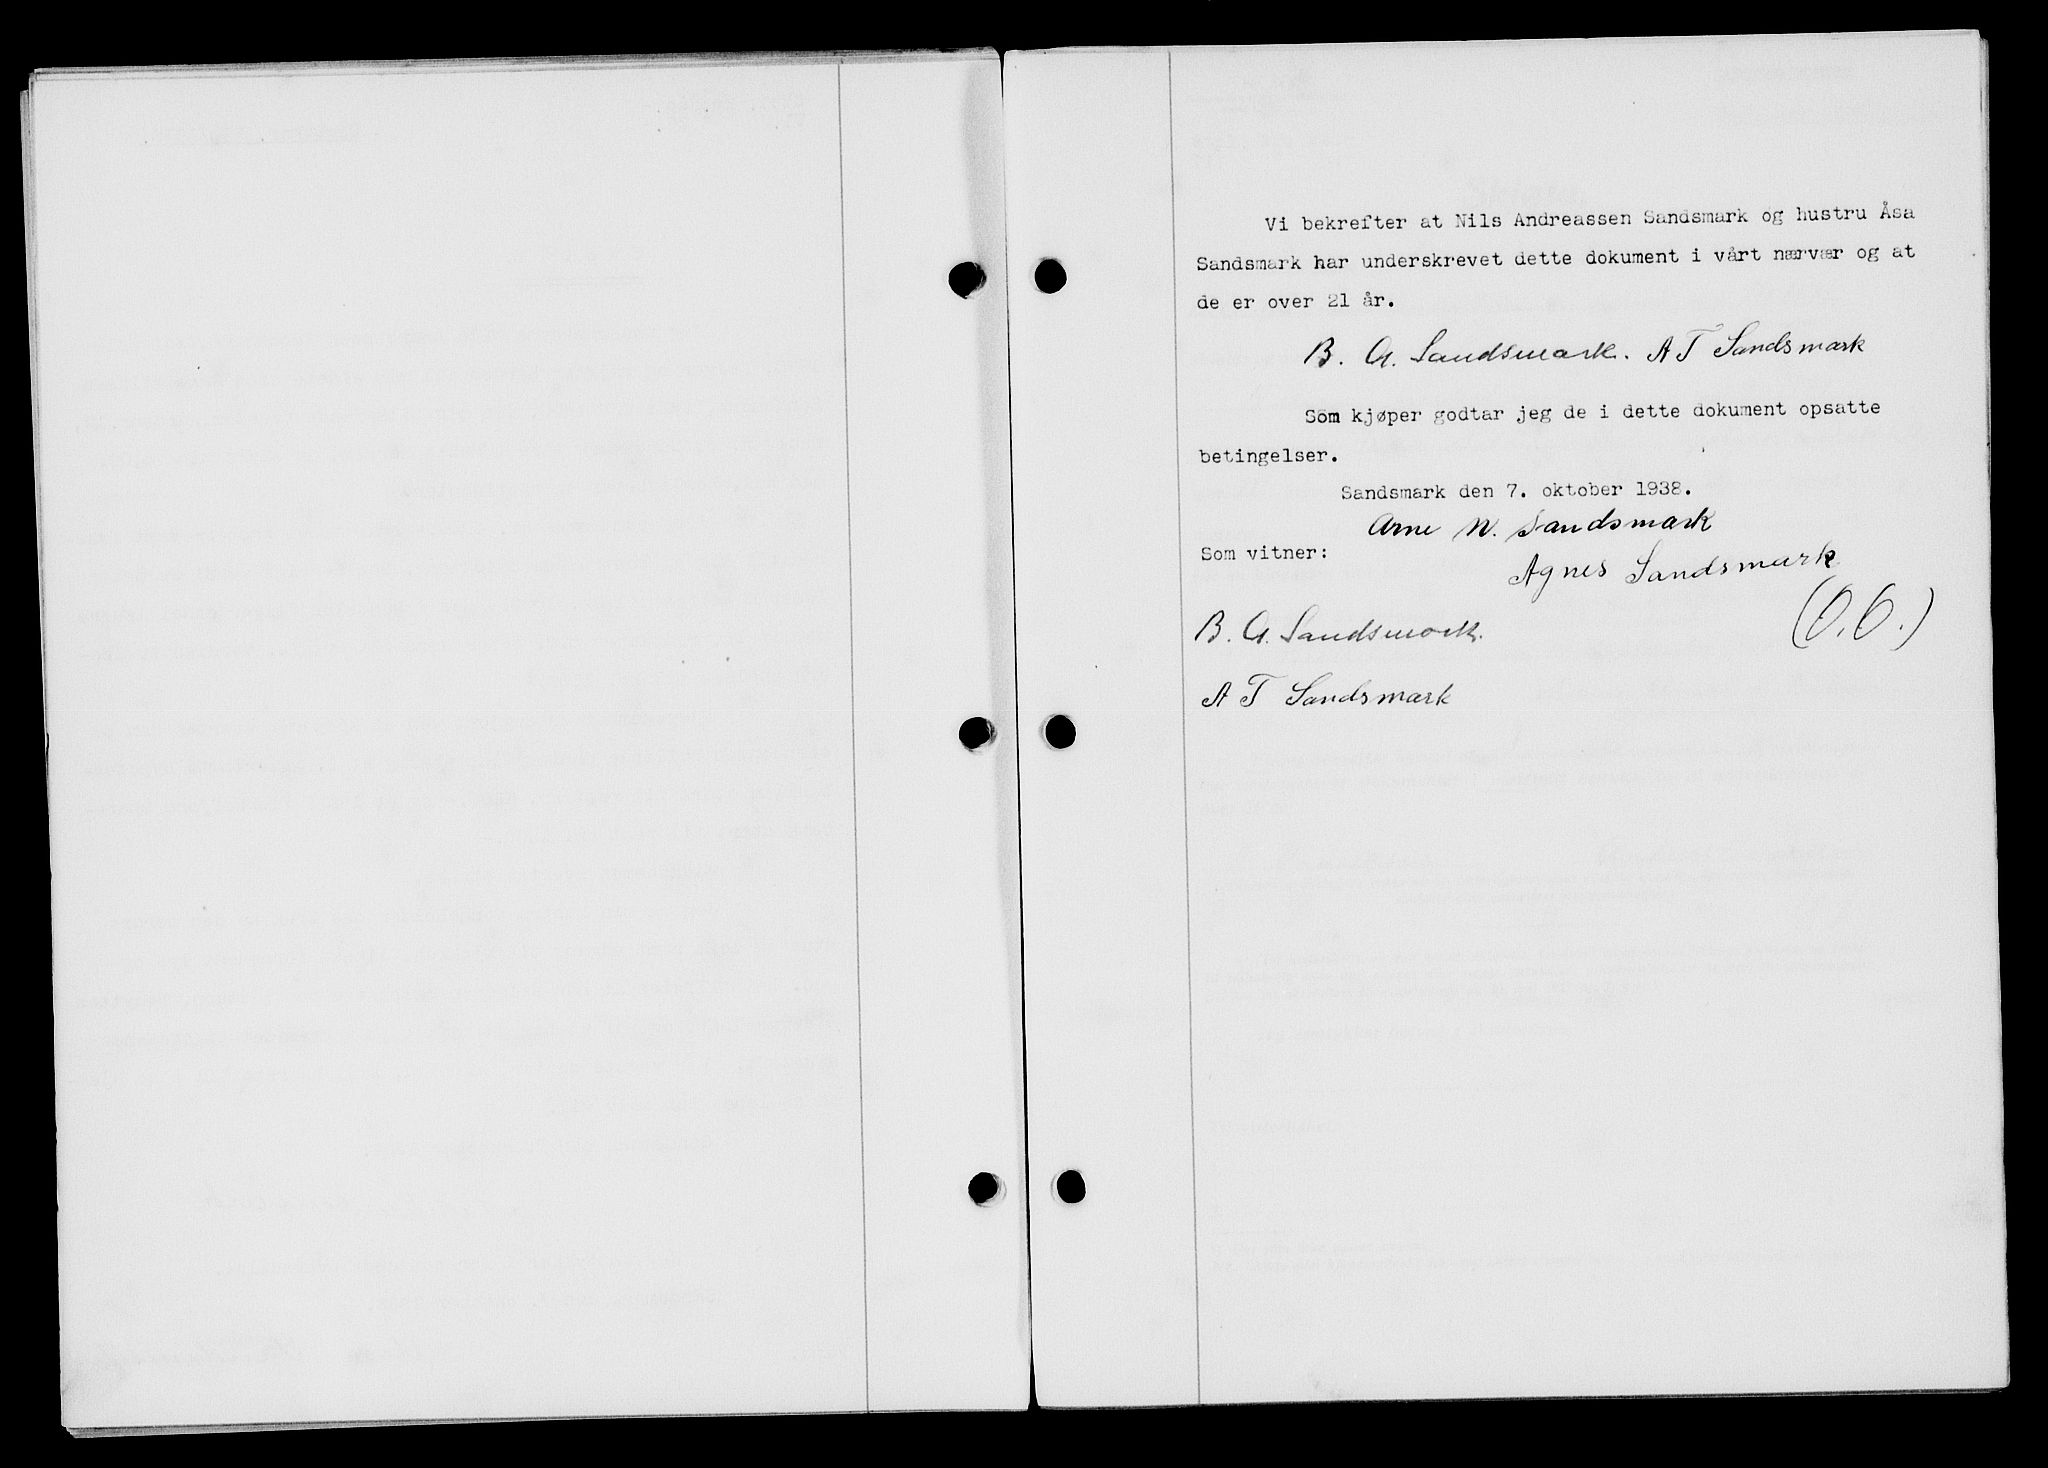 Vi bekrefter at Nils Andreassen Sandsmark og hustru Åsa
Sandsmark har underskrevet dette dokument i vårt nærvær og at
de er over 21 år.
B. A. Sandsmark. A T Sandsmark
Som kjøper godtar jeg de i dette dokument opsatte
betingelser.
Sandsmark den 7. oktober 1938.
Arne N. Sandsmark
Som vitner:
Agnes Sandsmark
B. A. Sandsmark.
A T Sandsmark